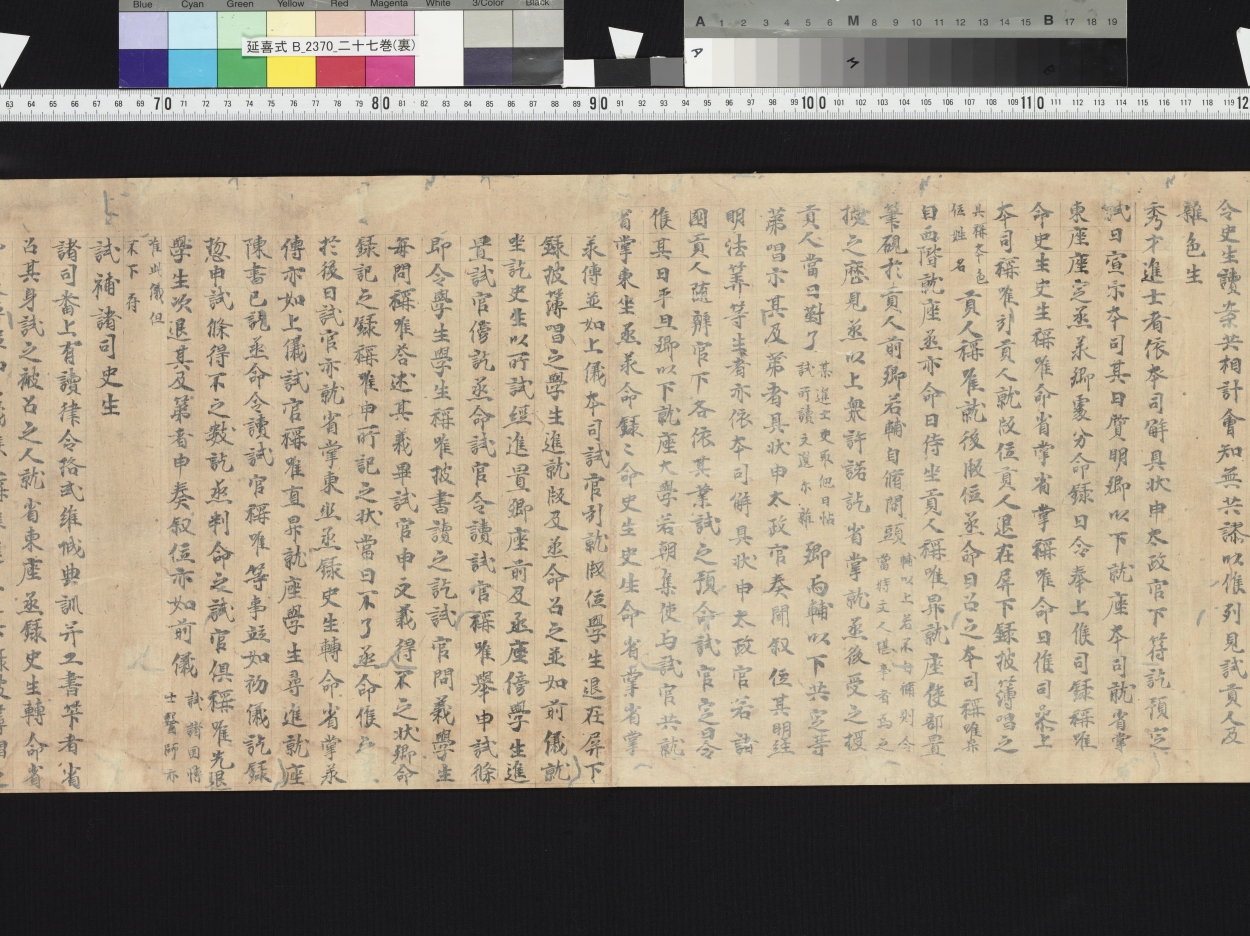 Blue Cyan Green Yellow Red Magenta White 3/Color Black
延喜式 B_2370_二十七巻(裏)
A 1 2 3 4 5 6 M 8 9 10 11 12 13 14 15 B 17 18 19
63 64 65 66 67 68 69 70 71 72 73 74 75 76 77 78 79 80 81 82 83 84 85 86 87 88 89 90 91 92 93 94 95 96 97 98 99 100 101 102 103 104 105 106 107 108 109 110 111 112 113 114 115 116 117 118 119 12
令史生讀案共相計會知無共謬以修列見試貢人及
雜色生
秀才進士者依本司解具状申太政官下符訖預定
試日宣示本司其日質明卿以下就座本司就省掌
東座座定丞录卿處分命録曰令奉上候司録稱唯
命史生史生稱唯命省掌省掌稱唯命曰候司参上
本司稱唯引貢人就版位貢人退在屏下録披簿唱之
貢人稱唯就後版位丞命曰召之本司稱唯
具稱本色
位姓名
曰西階就座丞亦命曰侍坐貢人稱唯昇就座使部置
筆硯於貢人前卿若輔自脩問頭
輔以上若不自備則令
當時文人堪事者為之
授之歴見丞以上衆許諾訖省掌就丞後受之授
貢人當日對了
其進士史取但日帖
試所讀文選尓雅
卿向輔以下共定等
第唱示其及第者具状申太政官奏聞叙位其明経
明法筭等生者亦依本司解具状申太政官若諸
國貢人随辨官下各依其業試之預命試官定日令
候其日平旦卿以下就座大學若朝集使与試官共就
省掌東坐丞录命録〻命史生史生命省掌省掌
录傳並如上儀本司試官引就版位學生退在屏下
録披簿唱之學生進就版及丞命召之並如前儀就
坐訖史生以所試經進置卿座前及丞座傍學生進
置試官傍訖丞命試官令讀試官稱唯舉申試條
即令學生學生稱唯披書讀之訖試官問義學生
毎問稱唯荅述其義畢試官申文義得不之状卿命
録記之録稱唯申所記之状當日不了丞命候
於後日試官亦就省掌東坐丞録史生轉命省掌录
傳亦如上儀試官稱唯直昇就座學生尋進就座
陳書已訖丞命令讀試官稱唯等事並如初儀訖録
惣申試條得不之數訖丞判命之試官倶稱唯先退
學生次退其及第者申奏叙位亦如前儀
試諸國博
士醫師亦
准此儀但
不下存
試補諸司史生
諸司番上有讀律令格式維城典訓并工書筭者省
召其身試之被召之人就省東座丞録史生轉命省